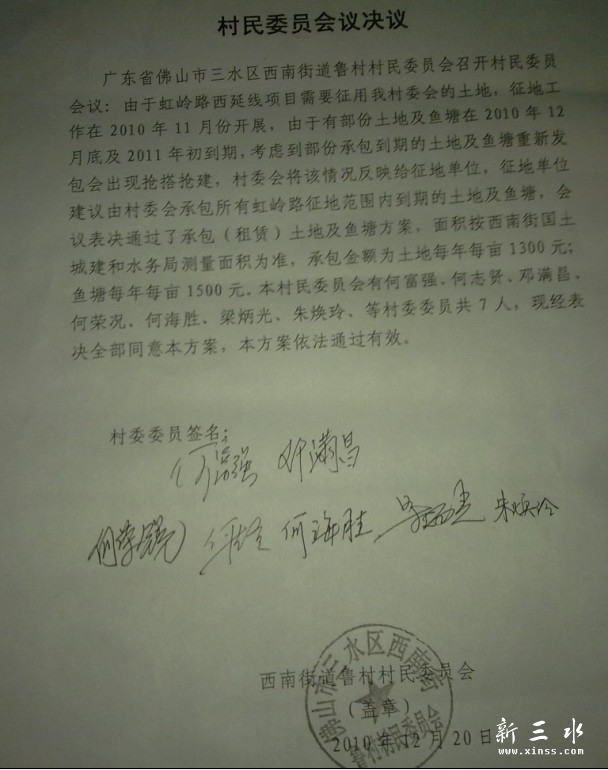 村民委员会议决议
广东省佛山市三水区西南街道鲁村村民委员会召开村民委员
会议：由于虹岭路西延线项目需要征用我村委会的土地，征地工
作在 2010 年 11 月份开展，由于有部份土地及鱼塘在 2010 年 12
月底及 2011 年初到期，考虑到部份承包到期的土地及鱼塘重新发
包会出现抢搭抢建，村委会将该情况反映给征地单位，征地单位
建议由村委会承包所有虹岭路征地范围内到期的土地及鱼塘，会
议表决通过了承包（租赁）土地及鱼塘方案，面积按西南街国土
城建和水务局测量面积为准，承包金额为土地每年每亩 1300 元；
鱼塘每年每亩 1500 元。本村民委员会有何富强、何志贤、邓满昌、
何荣况、何海胜、梁炳光、朱焕玲、等村委委员共 7 人，现经表
决全部同意本方案，本方案依法通过有效。
村委委员签名：
何富强 邓满昌
何海胜 朱焕玲
佛山市三水区西南街
西南街道鲁村村民委员会
（盖章）
鲁村村民委员会
2010 年 12 月 20 日
新三水
www.xinss.com